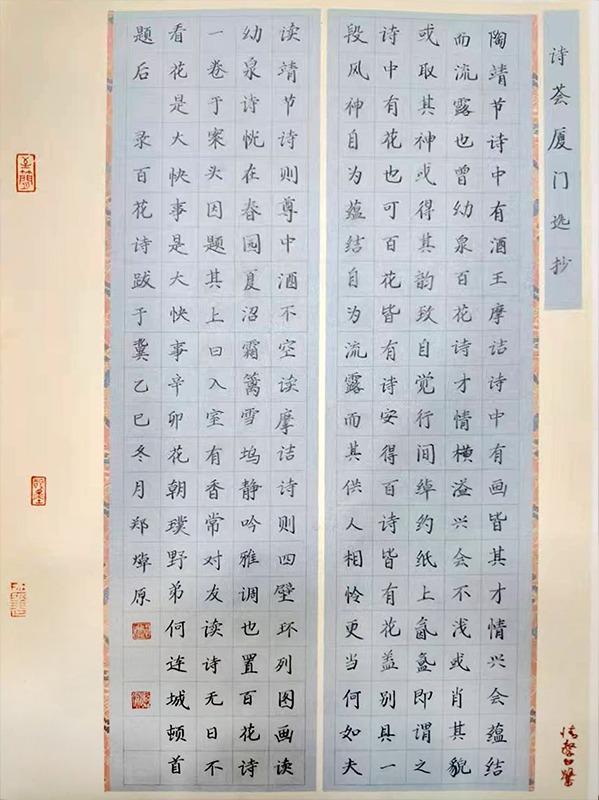 诗荟厦门选抄
陶靖节诗中有酒王摩诘诗中有画皆其才情兴会蕴结
而流露也曾幼泉百花诗才情横溢兴会不浅或肖其貌
或取其神或得其韵致自觉行间绰约纸上氤氲即谓之
诗中有花也可百花皆有诗安得百诗皆有花盖别具一
段风神自为蕴结自为流露而其供人相怜更当何如夫
读靖节诗则尊中酒不空读摩诘诗则四壁环列图画读
幼泉诗恍在春园夏沼霜篱雪坞静吟雅调也置百花诗
一卷于案头因题其上曰入室有香常对友读诗无日不
看花是大快事是大快事辛卯花朝璞野弟何连城顿首
题后 录百花诗跋于冀乙巳冬月郑焯原